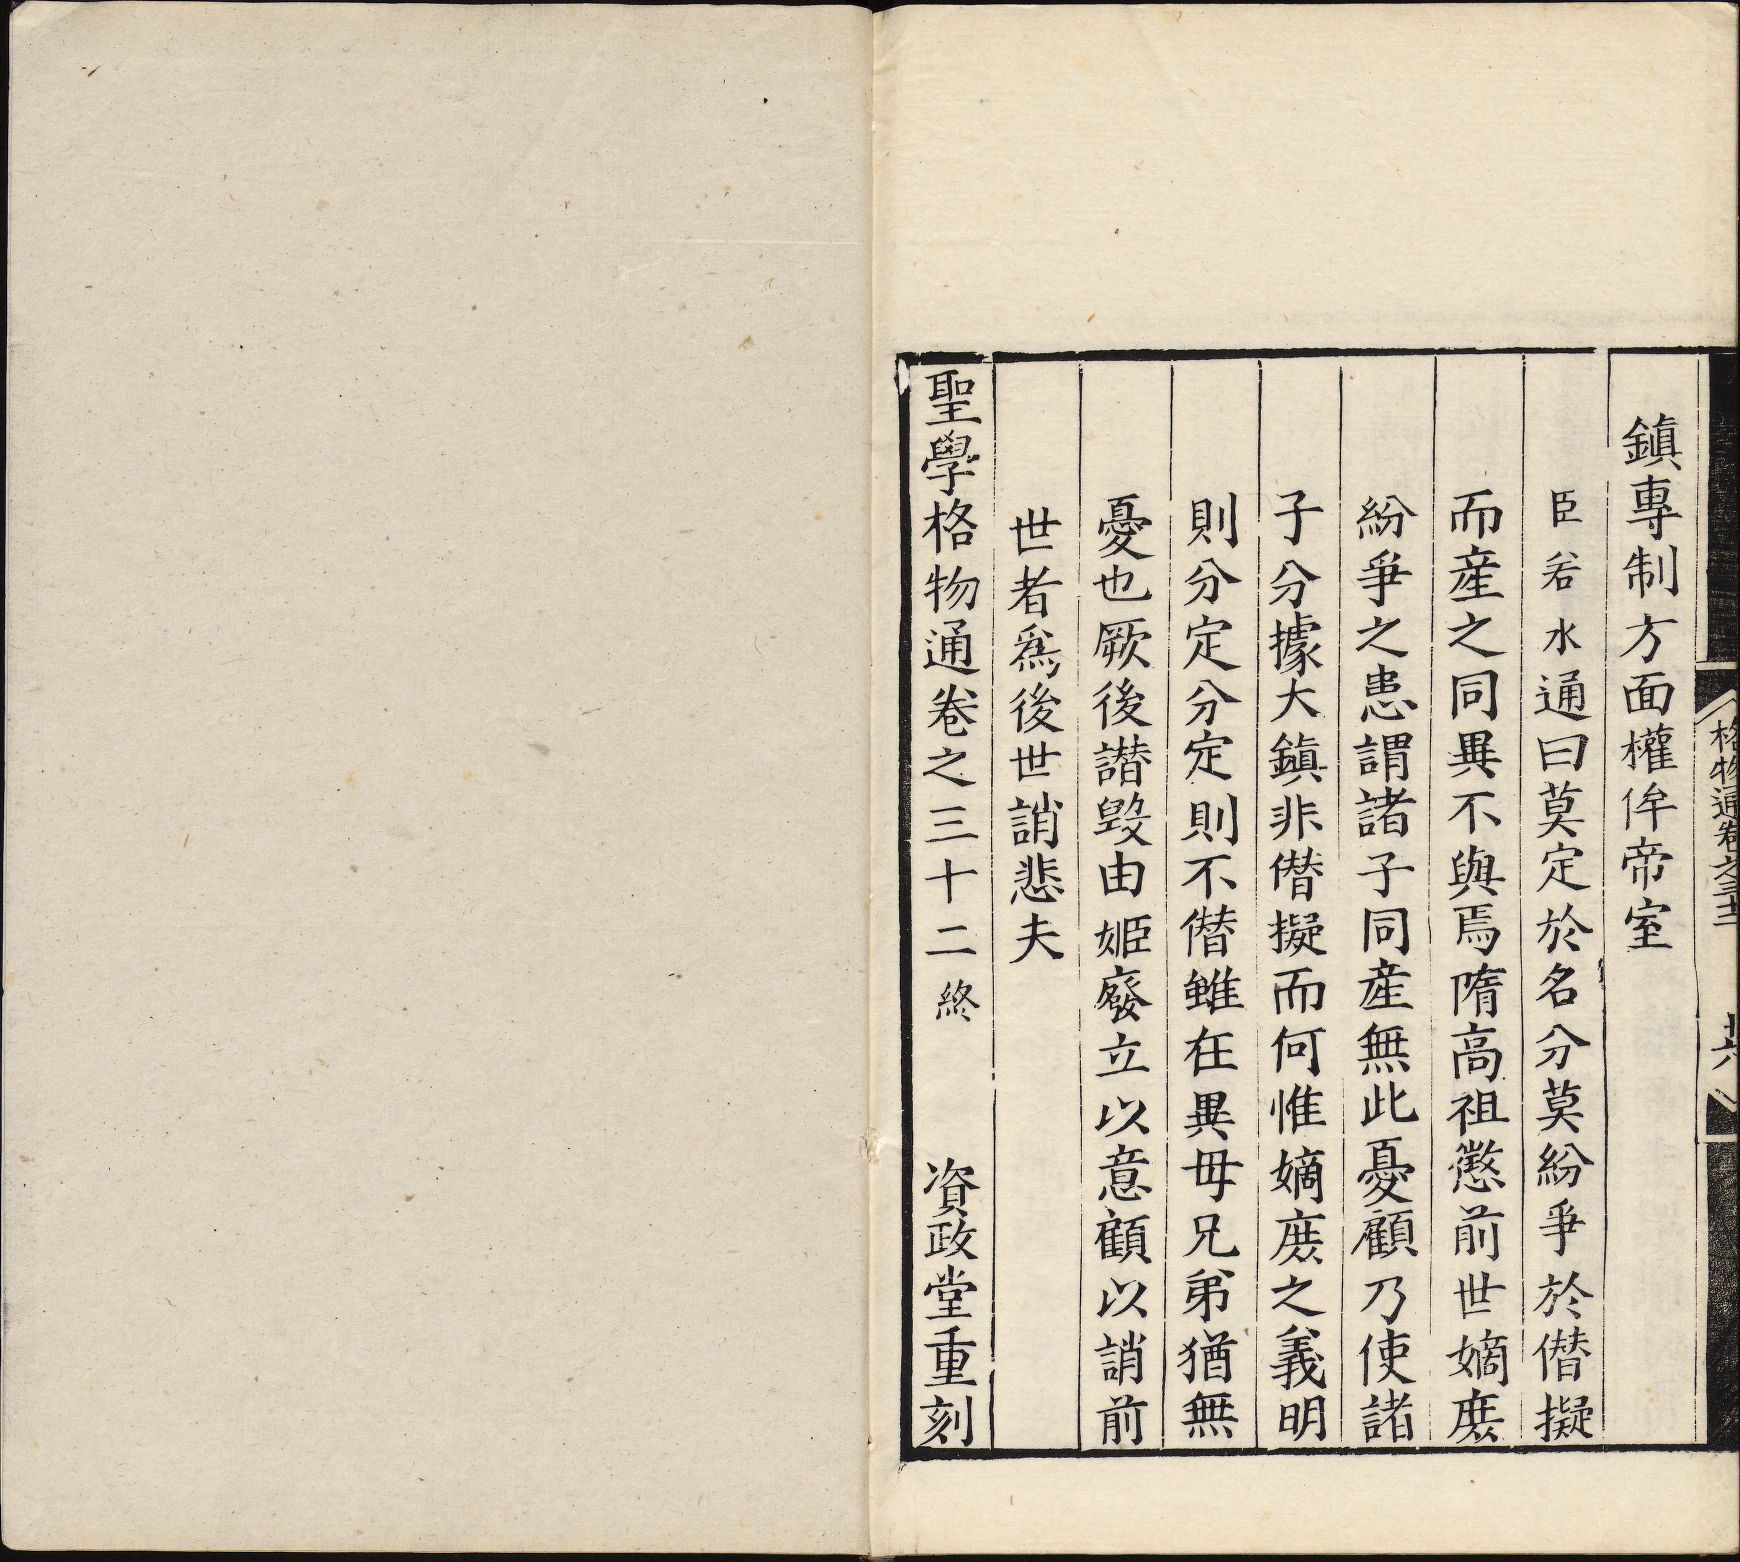 鎮專制方面權侔帝室
臣若水通曰莫定於名分莫紛爭於僭擬
而產之同異不與焉隋高祖懲前世嫡庶
紛爭之患謂諸子同產無此憂顧乃使諸
子分據大鎮非僭擬而何惟嫡庶之義明
則分定分定則不僭雖在異母兄弟猶無
憂也厥後譖毀由姬廢立以意顧以誚前
世者爲後世誚悲夫
聖學格物通卷之三十二終 資政堂重刻
格物通卷之三十二 廿六